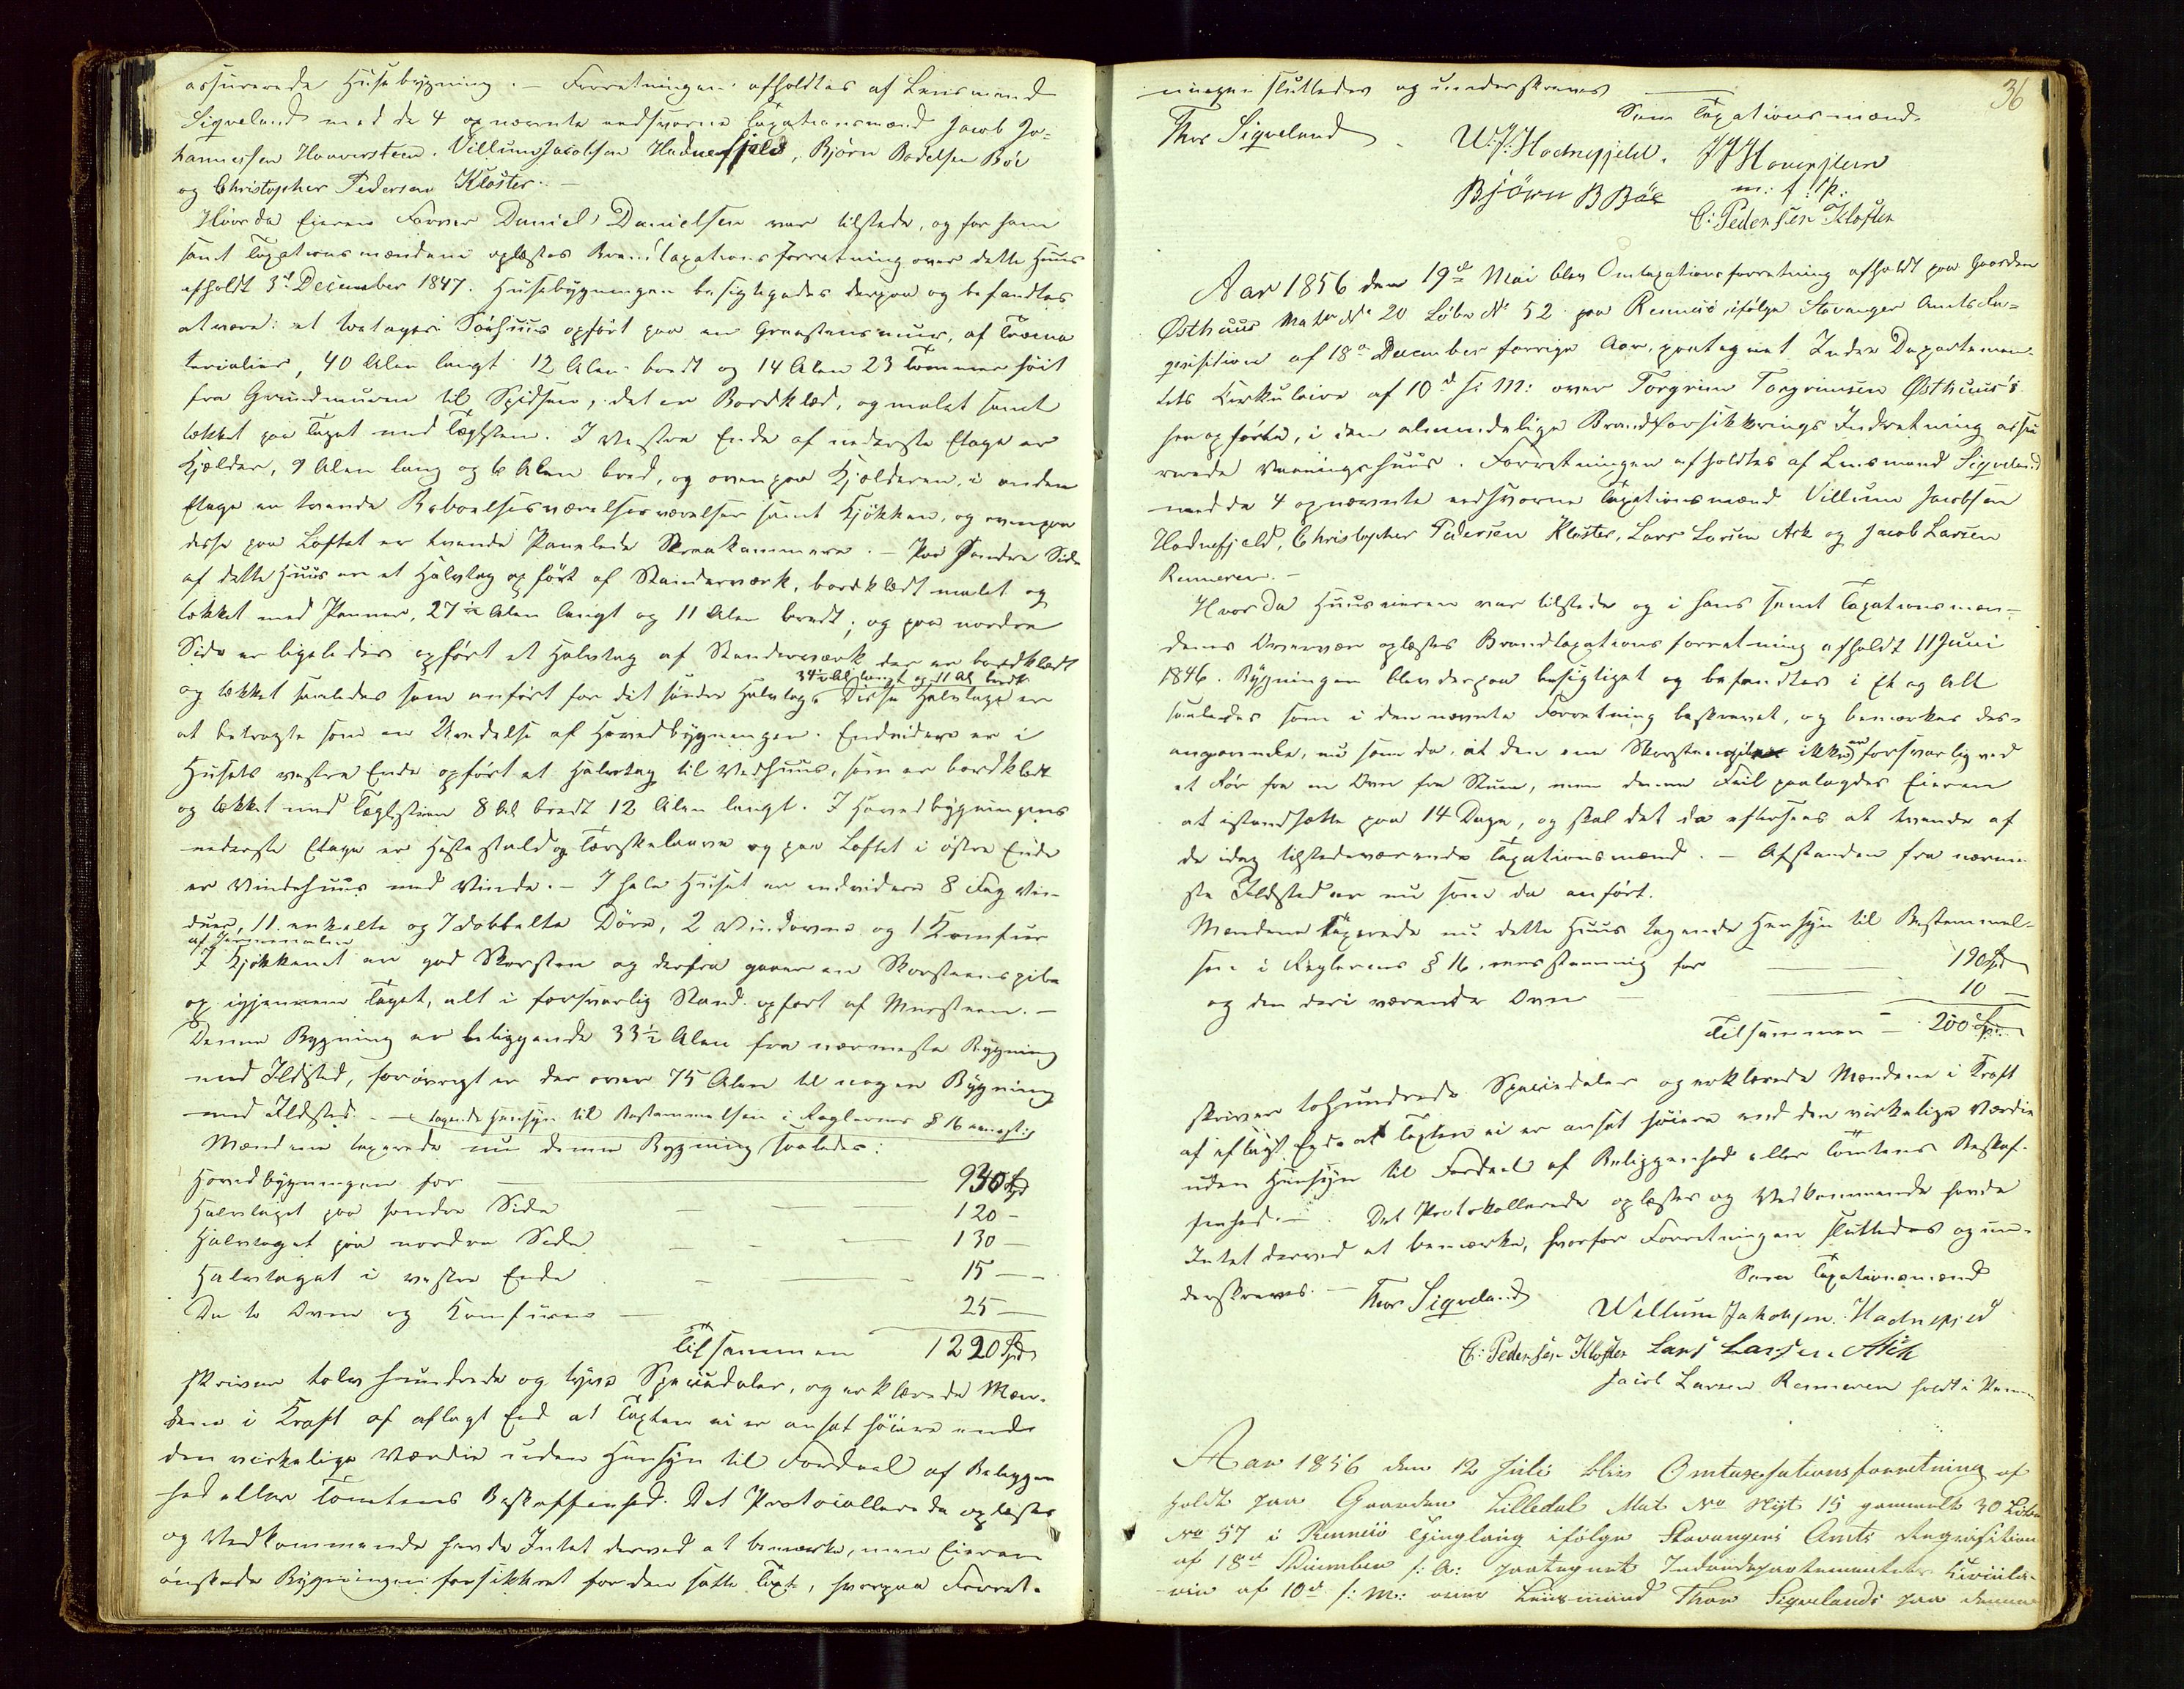 assurerede Husebygning. – Forretningen afholdtes af Lensmand
Siqveland med de 4 opnævnte edsvorne Taxationsmænd Jacob Jo-
hannesen Hanversteen. Villum Jacobsen Hadnefjeld, Bjørn Bodelsen Bøe
og Christopher Pedersen Kloster. –
Hvor da Eieren Former Daniel Danielsen var tilstede, og for ham
samt Taxationsmændene oplæstes Brandtaxationsforretning over dette Huus
afholdt 3d December 1847. Husebygningen besigtigedes derpaa og befandtes
at være: et toetages Søehuus opført paa en Graastensmuur, af Træma-
terialier, 40 Alen langt 12 Alen bredt og 14 Alen 23 Tommer høit
fra Grundmuren til Spidsen, det er Bordklæd, og malet samt
tækket paa Taget med Tæglsten. I vestre Ende af nederste Etage er
Kjælder, 9 Alen lang og 6 Alen bred, og ovenpaa Kjælderen, i anden
Etage er tvende Beboelsesværelsesværelser samt Kjøkken, og ovenpaa
disse paa Loftet er tvende Panelede Skraakammere. – Paa søndre Side
af dette Huus er et Halvtag opført af Standerværk, bordklædt malet og
tækket med Panner, 27 ½ Alen langt og 11 Alen bredt; og paa nordre
Side er ligeledes opført et Halvtag af Standerværk der er bordklædt
34½ Al langt og 11 Al bredt
og tækket saaledes som anført for det søndre Halvtag. Disse Halvtage er
at betragte som en Udvidelse af Hovedbygningen. Endvidere er i
Husets vestre Ende opført et Halvtag til Vedhuus, som er bordklædt
og tækket med Tæglsteen 8 Al bredt 12 Alen langt. I Hovedbygningens
nederste Etage er Hestestald og Tærskelaave og paa Loftet i østre Ende
er Vindehuus med Vinde. – I hele Huset er endvidere 8 Fag Vin-
duer, 11 enkelte og 7 dobbelte Døre, 2 Vindovne og 1 Komfur
af Jernmaterialer
I Kjøkkenet er god Skorsten og derfra gaaer en Skorsteenspibe
op igjennem Taget, alt i forsvarlig Stand opført af Muursteen. –
Denne Bygning er beliggende 33½ Alen fra nærmeste Bygning
med Ildsted, forøvrigt er der over 75 Alen til nogen Bygning
med Ildsted. – tagende Hensyn til Bestemmelsen i Reglernes § 16
Mændene taxerede nu denne Bygning saaledes:
Hovedbygningen for — 930 Spd
Halvtaget paa søndre Side — 120 –
Halvtaget paa nordre Side — 130 –
Halvtaget i vestre Ende — 15 –
De to Ovne og Komfuren — 25 –
Tilsammen 1220 Spd
skriver tolv hundrede og tyve Speciedaler, og erklærede Mæn-
dene i Kraft af aflagt Eed at Taxten ei er ansat høiere end
den virkelige Værdie uden Hensyn til Fordeel af Beliggen-
hed eller Tomtens Beskaffenhed. Det Protocollerede oplæstes
og Vedkommende havde Intet derved at bemærke, men Eieren
ønskede Bygningen forsikkret for den satte Taxt, hvorpaa Forret-
36
ningen sluttedes og underskreves
Som Taxationsmænd
Thor Siqveland W. J. Hodnefjeld. J J Hanersteen
m: f: P:
Bjørn B Böe C: Pedersen Kloster
Aar 1856 den 19de Mai blev Omtaxationsforretning afholdt paa Gaarden
Østhuus Matr No 20 Løbe No 52 paa Rennesø, ifølge Stavanger Amts Re-
qvisition af 18de December forrige Aar, paategnet Indre Departemen-
tets Cirkulaire af 10d s: M: over Torgrim Torgrimsen Østhuus's
her opførte, i den almindelige Brandforsikkrings Indretning assu-
rerede Vaaningshuus. Forretningen afholdtes af Lensmand Siqveland
med de 4 opnævnte edsvorne Taxationsmænd Villum Jacobsen
Hodnefjeld, Christopher Pedersen Kloster, Lars Larsen Ask og Jacob Larsen
Renneren. –
Hvor da Huuseieren var tilstede og i hans samt Taxationsmæn-
denes Overvær oplæstes Brandtaxationsforretning afholdt 11 Juni
1846. Bygningen blev derpaa besigtiget og befandtes i Et og Alt
saaledes som i den nævnte Forretning beskrevet, og bemærkes des-
angaaende, nu som da, at den ene Skorstenspibe ikke er forsvarlig ved
et Rør fra en Ovn fra Stuen, men denne Feil paalagdes Eieren
at istandsætte paa 14 Dage, og skal det da eftersees at tvende af
de idag tilstedeværende Taxationsmænd. – Afstanden fra nærme-
ste Ildsted er nu som da anført.
Mændene Taxerede nu dette Huus tagende Hensyn til Bestemmel-
sen i Reglernes § 16 for — 190 Spd
og den deri værende Ovn — 10 –
Tilsammen – 200 Spd
skriver tohundrede Speciedaler og erklærede Mændene i Kraft
af aflagt Eed at Taxten ei er ansat høiere end den virkelige Værdie
uden Hensyn til Fordeel af Beliggenhed eller Tomtens Beskaf-
fenhed. – Det Protokollerede oplæstes og Vedkommende havde
Intet derved at bemærke, hvorfor Forretningen sluttedes og un-
derskreves. – Som Taxationsmænd
Thor Siqveland Willum Jakobsen Hadnefjed
C: Pedersen Kloster Lars Larsen Ask
Jacob Larsen Renneren holdt i Pennen
Aar 1856 den 12 Juli blev Omtaxationsforretning af-
holdt paa Gaarden Lilledal Mat No Nyt 15 gammelt 30 Løbe
No 57 i Rennesø Thinglaug ifølge Stavangers Amts Reqvisition
af 18d December f: A: paategnet Indredepartementets Circulai-
re af 10d s: M: over Lensmand Thor Siqvelands paa denne